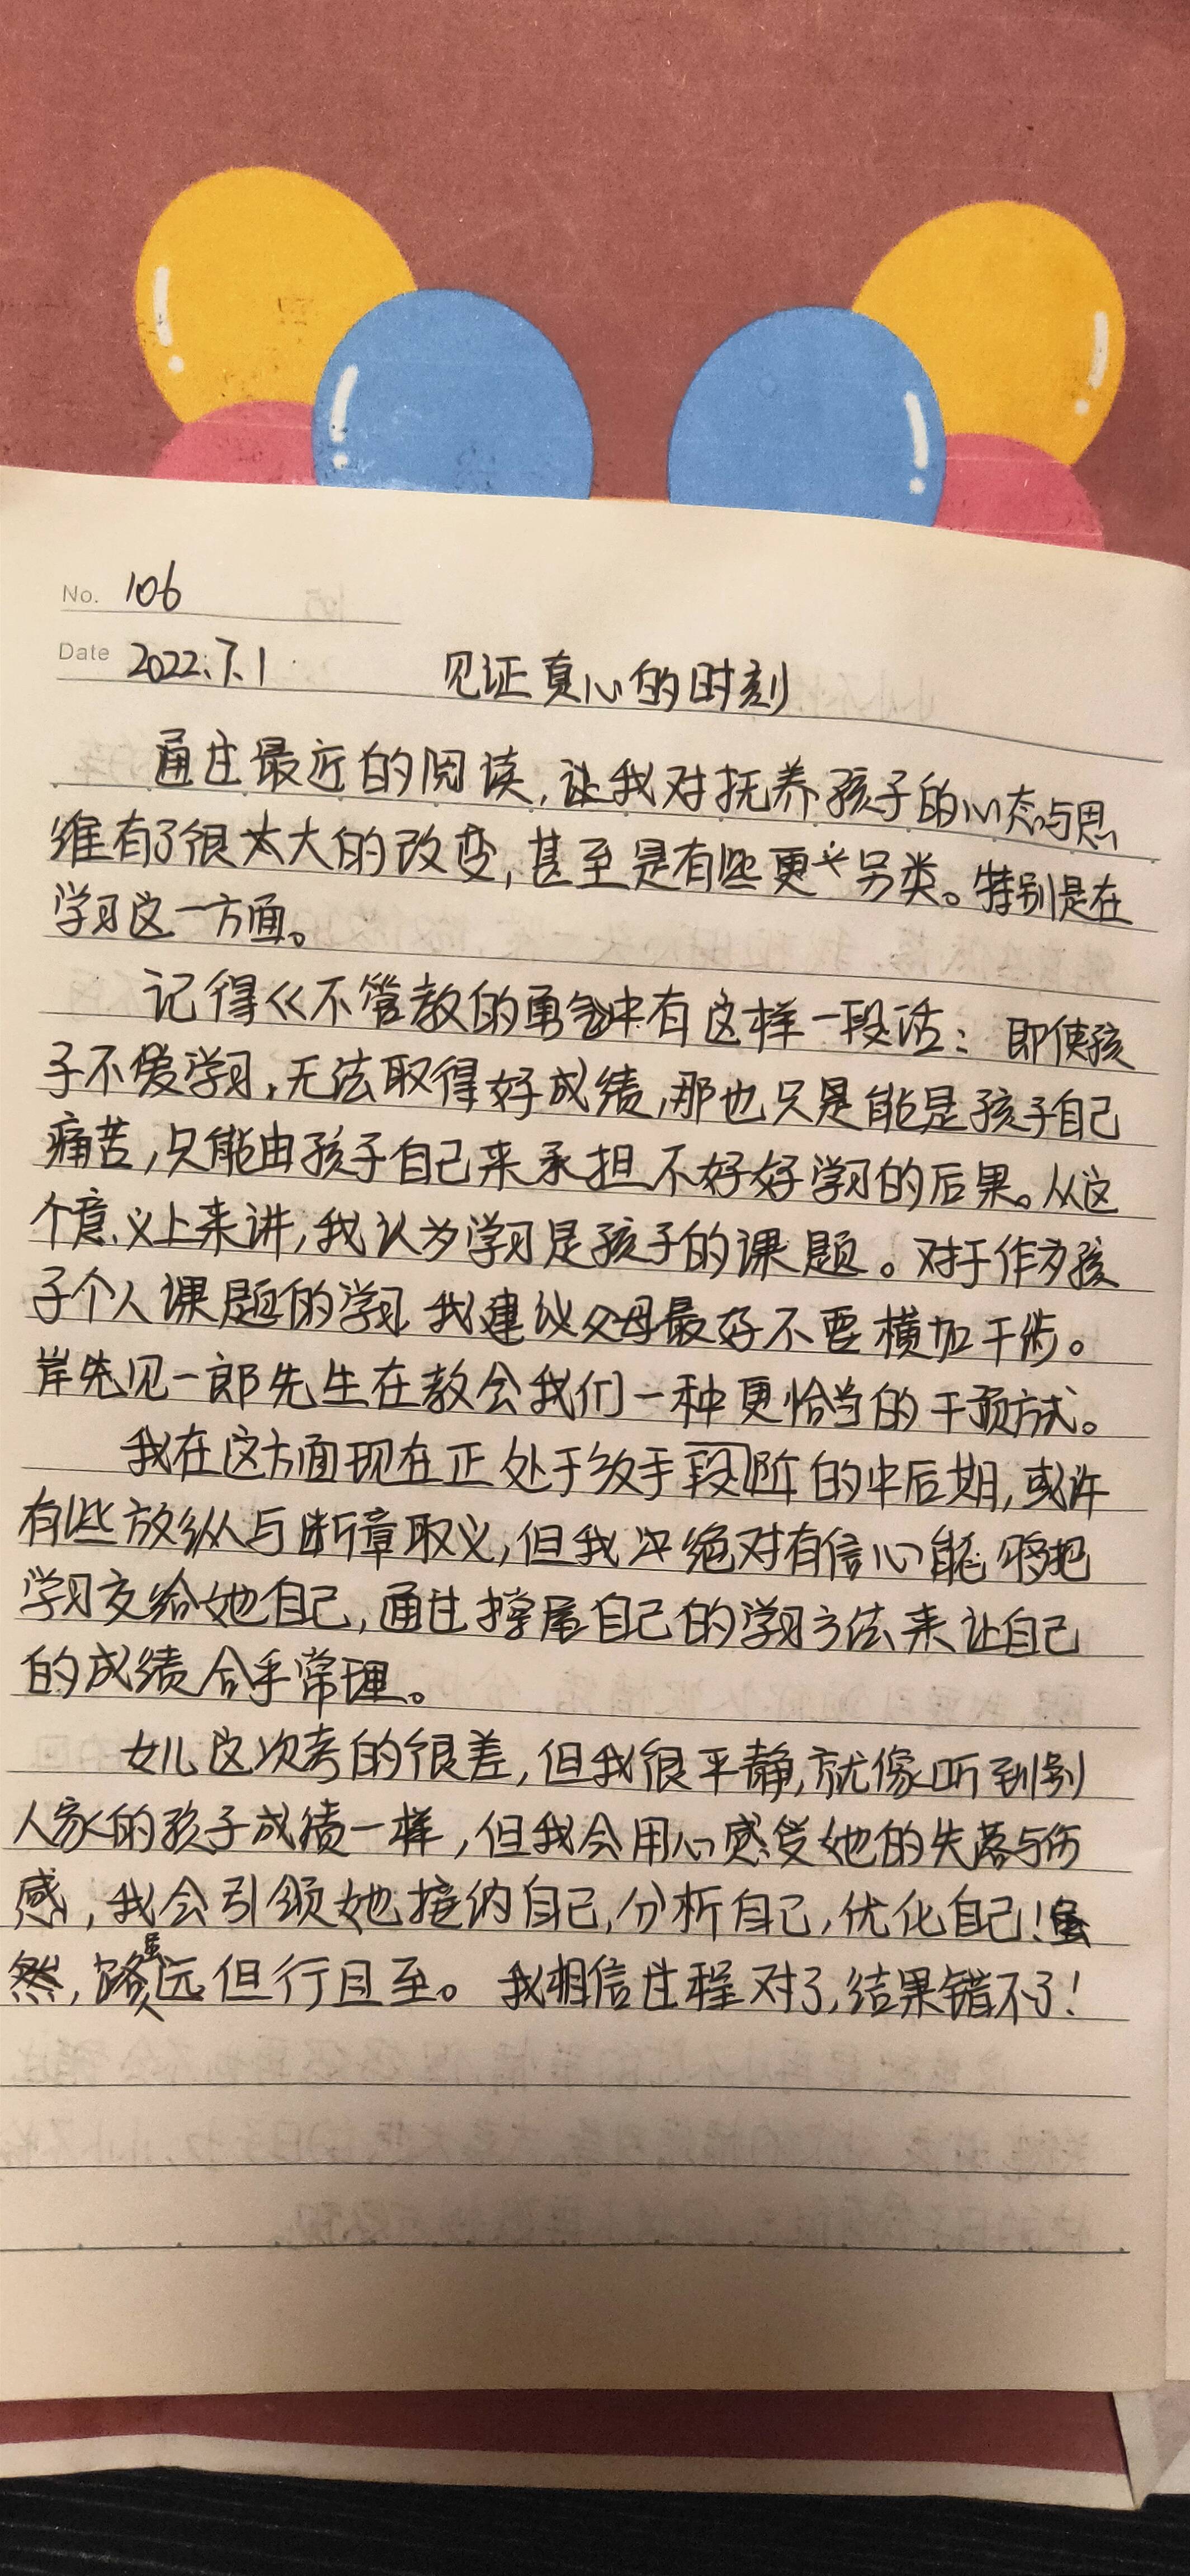 No. 106
Date 2022.7.1 见证真心的时刻
通过最近的阅读，让我对抚养孩子的心态与思
维有了很大大的改变，甚至是有些更另类。特别是在
学习这一方面。
记得《不管教的勇气》中有这样一段话：即使孩
子不爱学习，无法取得好成绩，那也只是能是孩子自己
痛苦，只能由孩子自己来承担不好好学习的后果。从这
个意义上来讲，我认为学习是孩子的课题。对于作为孩
子个人课题的学习 我建议父母最好不要横加干涉。
岸先见一郎先生在教会我们一种更恰当的干预方式。
我在这方面现在正处于放手段阶的中后期，或许
有些放纵与断章取义，但我绝对有信心能够把
学习交给她自己，通过掌握自己的学习方法来让自己
的成绩合乎常理。
女儿这次考的很差，但我很平静，就像听到别
人家的孩子成绩一样，但我会用心感受她的失落与伤
感，我会引领她接纳自己，分析自己，优化自己！虽
然，路虽远但行且至。我相信过程对了，结果错不了！